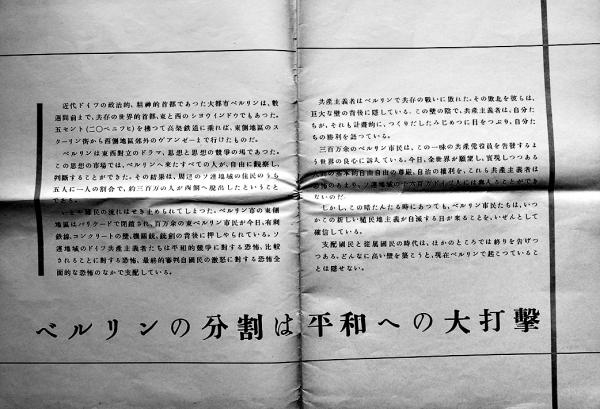 近代ドイツの政治的、精神的首都であつた大都市ベルリンは、数
週間前まで、共存の世界的首都、東と西のシヨウインドウでもあつた。
五セント(二〇ペニフヒ)を拂つて高架鉄道に乗れば、東側地区のス
ターリン街から西側地区郊外のヴアンゼーまで行けたものだ。
ベルリンは東西対立のドラマ、思想と思想の競爭の場であつた。
この思想の市場では、ベルリンへ来たすべての人が、自由に観察し、
判断することができた。その結果は、周辺のソ連地域の住民のうち
五人に一人の割合で、約三百万の人が西側へ脱出したということ
である。
いまや難民の流れはせき止められてしまつた。ベルリン市の東側
地区はバリケードで閉鎖され、百万余の東ベルリン市民が今日、有刺
鉄線、コンクリートの壁、機関銃、銃剣の背後に押しやられている。ソ
連地域のドイツ共産主義者たちは平和的競爭に対する恐怖、比較
されることに対する恐怖、最終的審判自國民の激怒に対する恐怖全
面的な恐怖のなかで支配している。
共産主義者はベルリンで共存の戦いに敗れた。その敗北を彼らは、
巨大な壁の背後に隠している。この壁の陰で、共産主義者は、自分た
ちが、それも計畫的に、つくりだしたみじめさに目をつぶり、自分た
ちの勝利を語つている。
三百万余のベルリン市民は、この一味の共産党役員を告発するよ
う世界の良心に訴えている。今日、全世界が願望し、実現しつつある
ための基本的自由自由の尊厳、自治の権利を、これら共産主義者は
恐怖のあまり、ソ連地域の千六百万ドイツ人には與えることができ
ないのだ。
しかし、この暗たんたる時にあつても、ベルリン市民たちは、いつ
かこの新しい植民地主義が自滅する日が来ることを、いぜんとして
確信している。
支配國民と従属國民の時代は、ほかのところでは終りを告げつ
つある。どんなに高い壁を築こうと、現在ベルリンで起こつているこ
とは隠せない。
ベルリンの分割は平和への大打擊